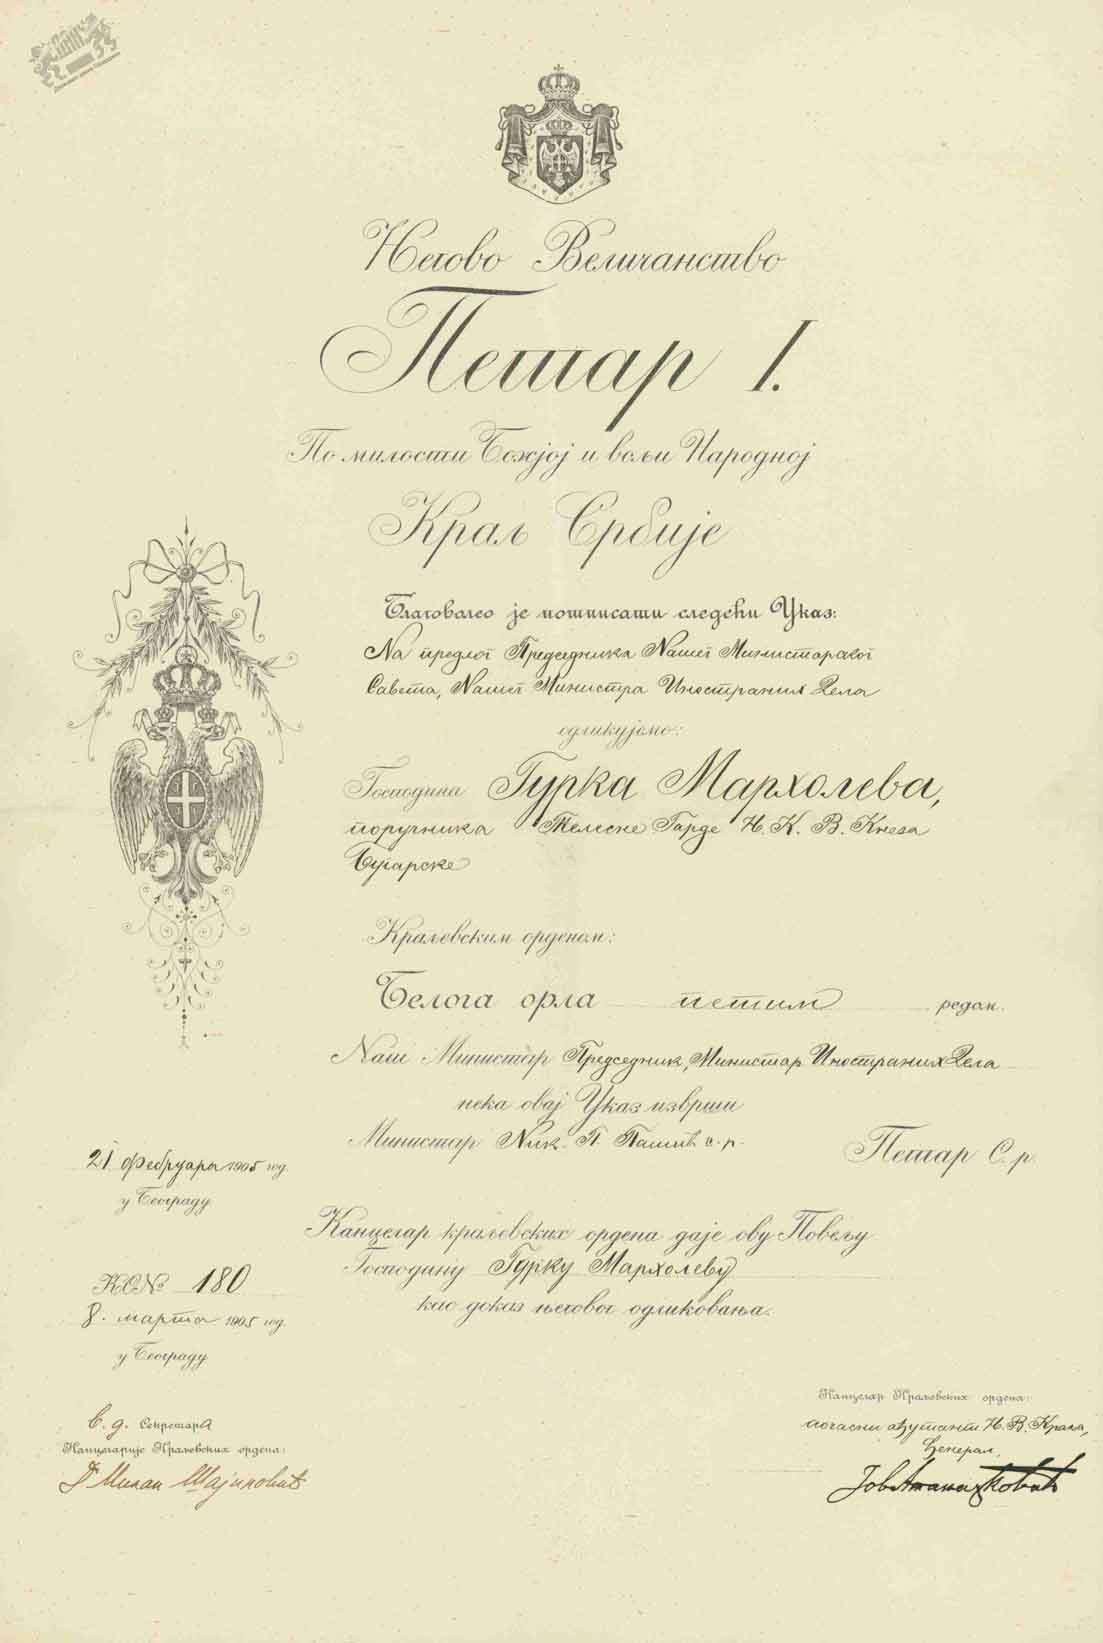 Његово Величанство
Петар I.
По милости Божјој и вољи Народној
Краљ Србије
Благоволео је потписати следећи Указ:
На предлог Председника Нашег Министарског
Савета, Нашег Министра Иностраних Дела
одликујемо:
Господина Гурка Мархолева,
поручника Телесне Гарде Њ. К. В. Кнеза
Бугарске
Краљевским орденом:
Белога орла петим редом.
Наш Министар Председник, Министар Иностраних Дела
нека овај Указ изврши
Министар Ник. П. Пашић с. р.
Петар С. р.
21 фебруара 1905 год.
у Београду
Канцелар краљевских ордена даје ову Повељу
Господину Гурку Мархолеву
као доказ његовог одликовања.
КО№ 180
8. марта 1905 год.
у Београду
В. д. Секретара
Канцеларије Краљевских ордена:
Др Милан
Канцелар Краљевских ордена:
почасни ађутант Њ. В. Краља,
Ђенерал,
Јов Атанацковић